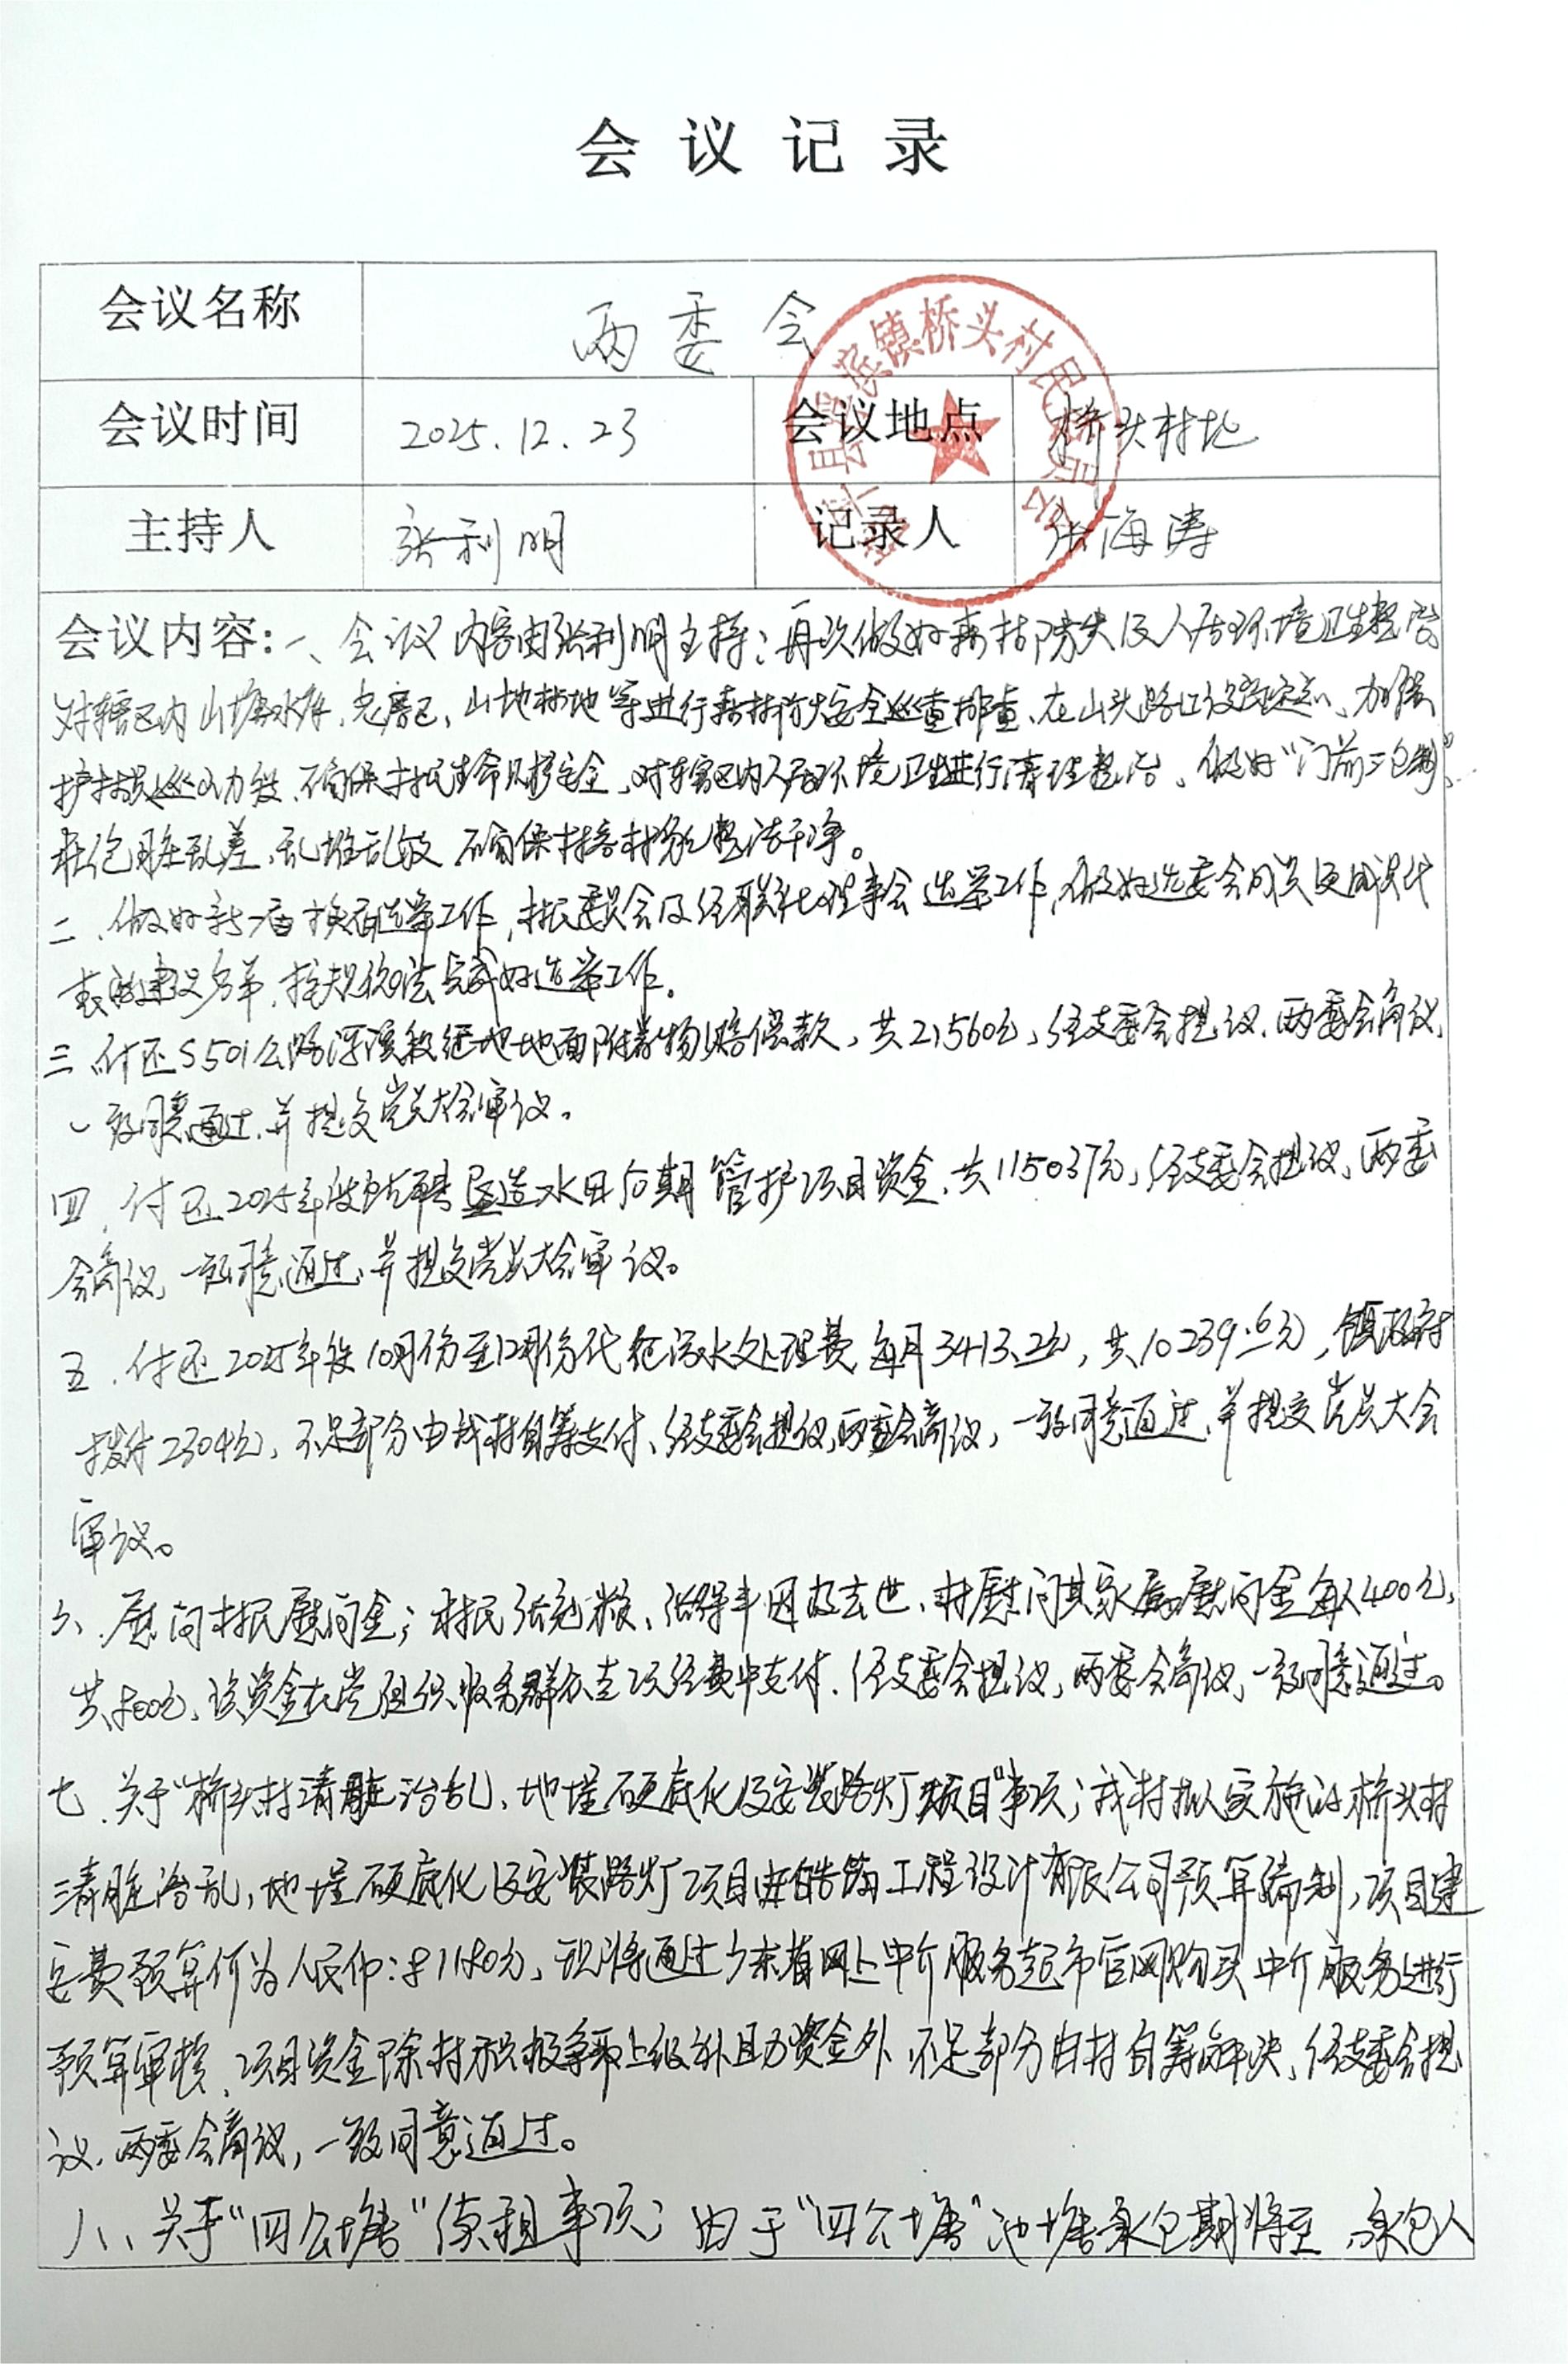 会议记录
会议名称 两委会
会议时间 2025.12.23 会议地点 桥头村
主持人 张利明 记录人 张海涛
镇桥头村民委员会
会议内容:一、会议内容由张利明主持:再次做好森林防火及人居环境卫生整治
对辖区内山塘水库、山地林地等进行森林防火安全巡查排查、在山头路口设、加强
护林员巡山力度、确保村民生命财产安全、对辖区内人居环境卫生进行清理整治、做好“门前三包制”、
杜绝脏乱差、乱堆乱放 确保村容村貌整洁干净。
二、做好新一届换届选举工作,村民委员会及经联社理事会选举工作,做好选委会成员及成员代
表的建议名单,按规依法完成好选举工作。
三、付还S501公路深溪段征地地面附着物赔偿款,共21560元,经支委会提议、两委会商议、
一致同意通过、并提交党员大会审议。
四、付还2025年度垦造水田后期管护项目资金、共115037元,经支委会提议、两委
会商议、一致同意通过、并提交党员大会审议。
五、付还2025年度10月份至12月份代缴污水处理费每月3413.2元,共10239.6元,镇政府
拨付2304元,不足部分由我村自筹支付、经支委会提议,两委会商议,一致同意通过、并提交党员大会
审议。
六、慰问村民慰问金;村民张、张因故去世、村慰问其家属慰问金每人400元,
共800元、该资金在党组织服务群众专项经费中支付.经支委会提议,两委会商议,一致同意通过。
七、关于“桥头村清脏治乱、地堂硬底化及安装路灯项目”事项;我村拟实施的桥头村
清脏治乱,地堂硬底化及安装路灯项目由工程设计有限公司预算编制,项目建
安费预算价为人民币:元、现将通过广东省网上中介服务超市官网购买中介服务进行
预算审核、项目资金除村积极争取上级补助资金外、不足部分由村自筹解决、经支委会提
议、两委会商议,一致同意通过。
八、关于“四公塘”续租事项;由于“四公塘”池塘承包期将至,承包人